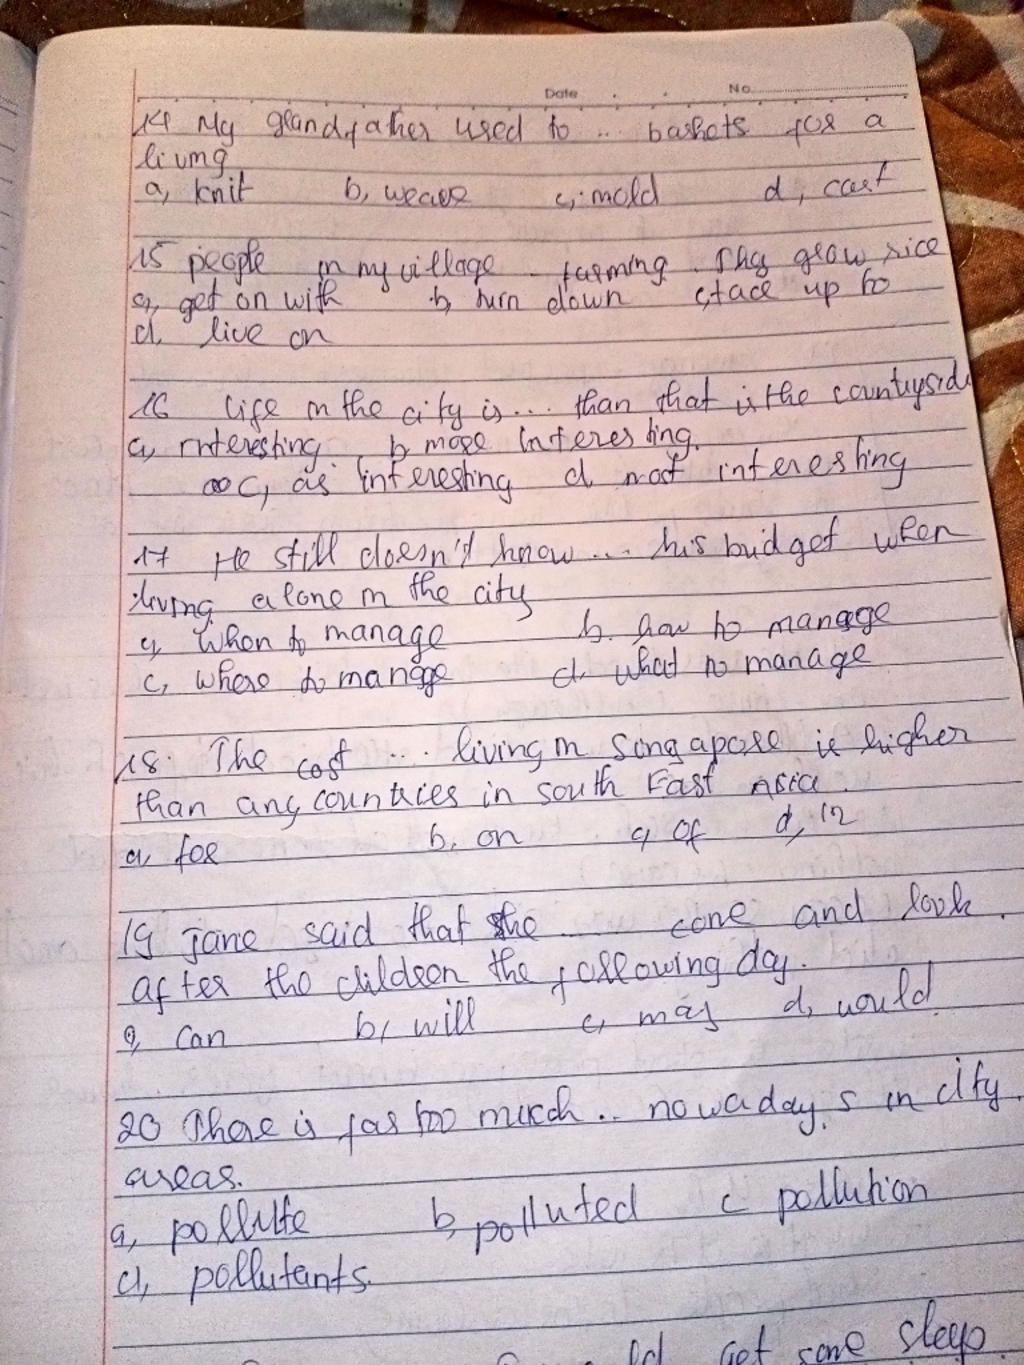 Date No
14 My grandfather used to ... baskets for a
living
a, knit b, weave c, mold d, cast
15 people in my village . farming. They grow rice
a, get on with b, turn down c, face up to
d, live on
16 life in the city is ... than that is the countryside
a, interesting b more interesting.
c, as interesting d most interesting
17 He still doesn't know ... his budget when
living alone in the city
a, when to manage b. how to manage
c, where to manage d, what to manage
18. The cost ... living in Singapore is higher
than any countries in south East Asia.
a, for b, on c, of d, in
19 Jane said that she ... come and look
after the children the following day.
a, can b, will c, may d, would
20 There is far too much .. nowadays in city
areas.
a, pollute b, polluted c pollution
d, pollutants.
get some sleep.